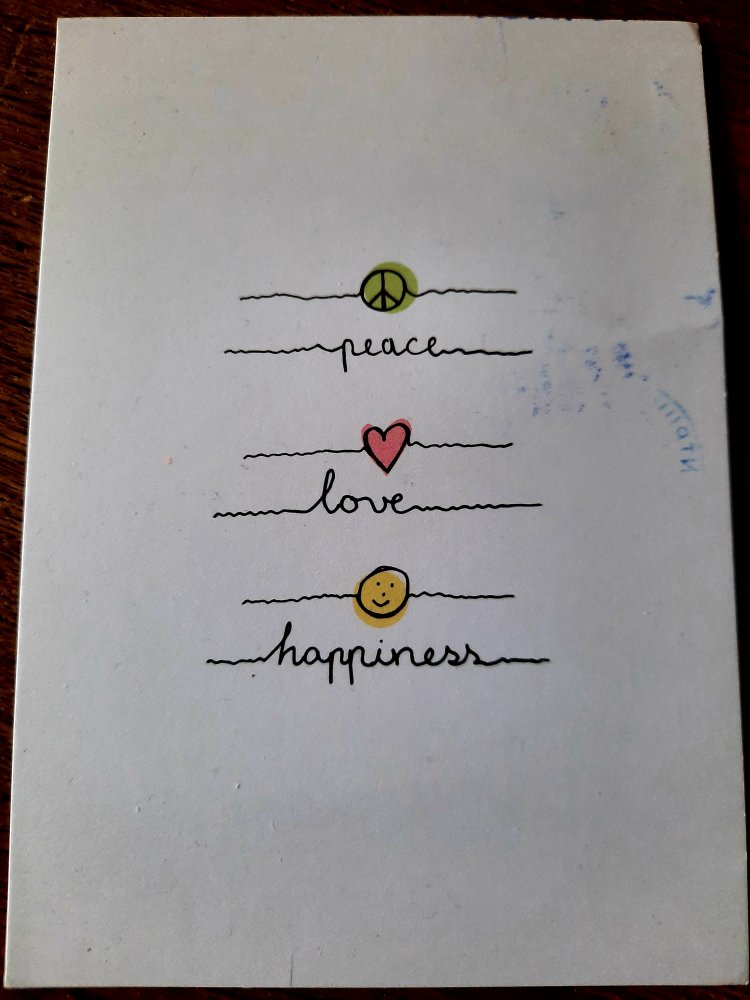 peace
love
happiness